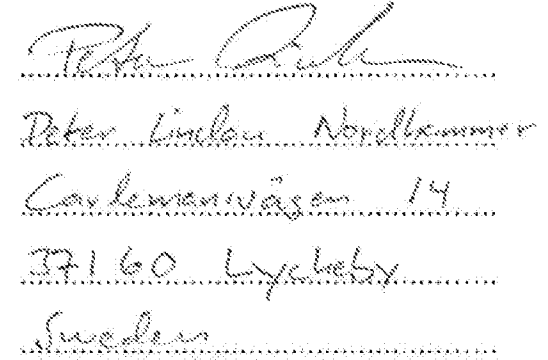 Peter
Peter Lindau Nordkammer
Carlemansvägen 14
37160 Lyckeby
Sweden